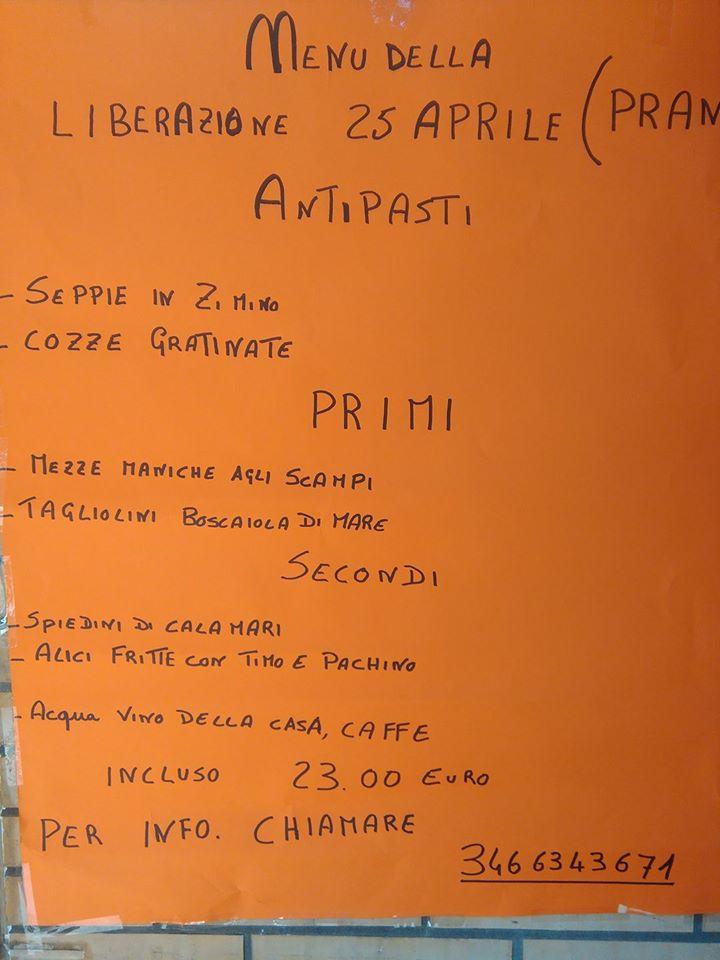 MENU DELLA
LIBERAZIONE 25 APRILE (PRAN
ANTIPASTI
- SEPPIE IN ZIMINO
- COZZE GRATINATE
PRIMI
- MEZZE MANICHE AGLI SCAMPI
- TAGLIOLINI BOSCAIOLA DI MARE
SECONDI
- SPIEDINI DI CALAMARI
- ALICI FRITTE CON TIMO E PACHINO
- Acqua VINO DELLA CASA, CAFFE
INCLUSO 23.00 EURO
PER INFO. CHIAMARE
3466343671